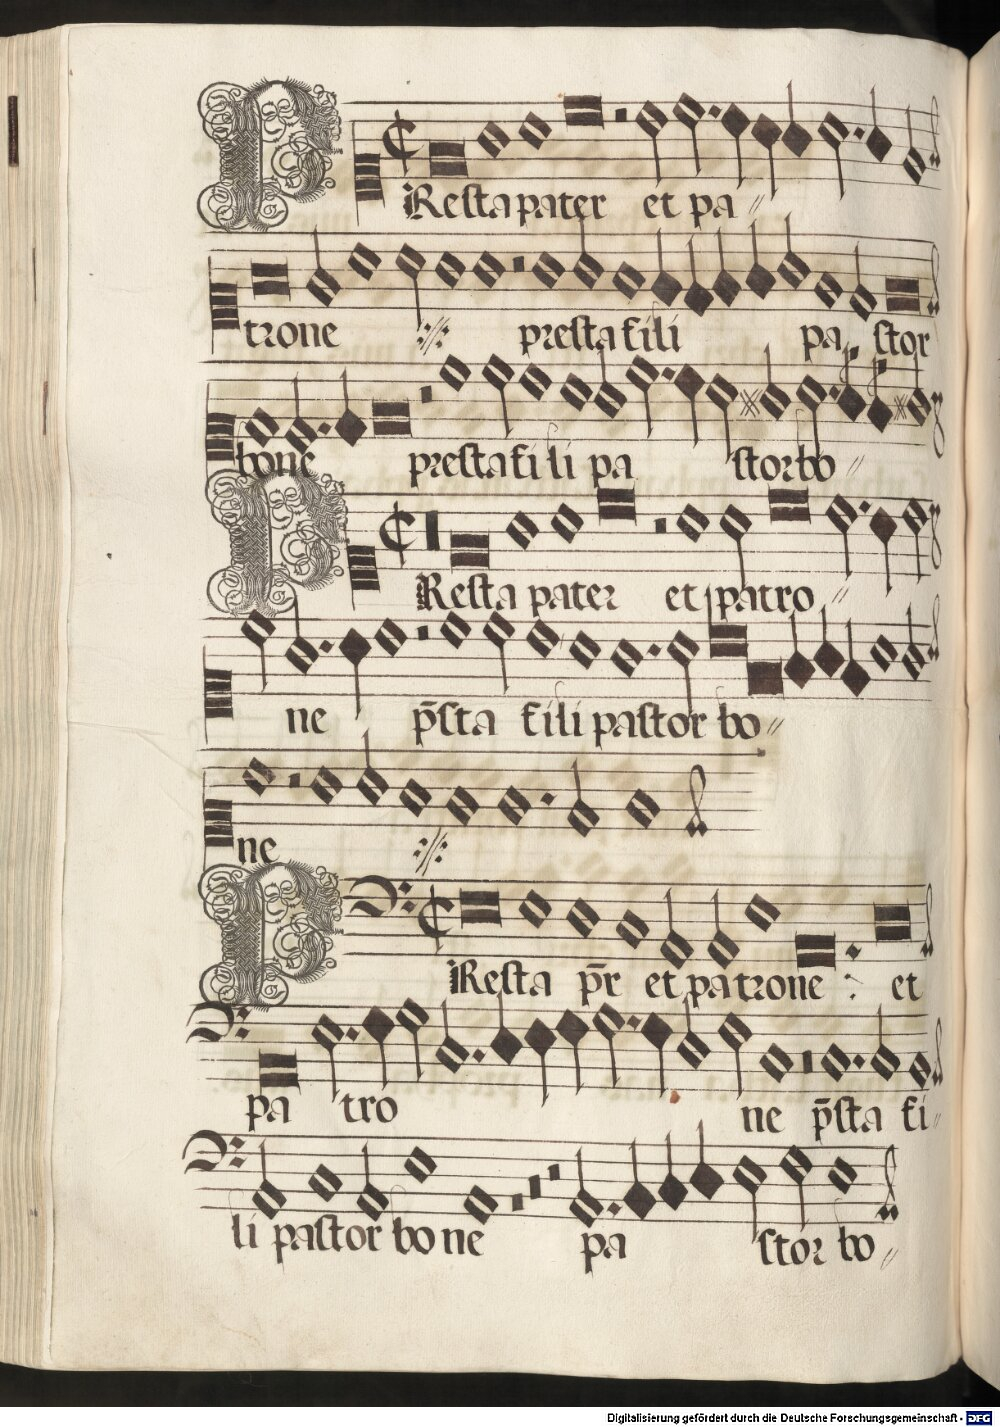 PResta pater et pa〃
trone ·//· presta fili pastor
bone presta fili pa storbo〃
PResta pater et patro〃
ne p̄sta fili pastor bo〃
ne ·//·
PResta pr̄ et patrone : et
pa tro ne p̄sta fi〃
li pastor bo ne pa stor bo〃
Digitalisierung gefördert durch die Deutsche Forschungsgemeinschaft - DFG